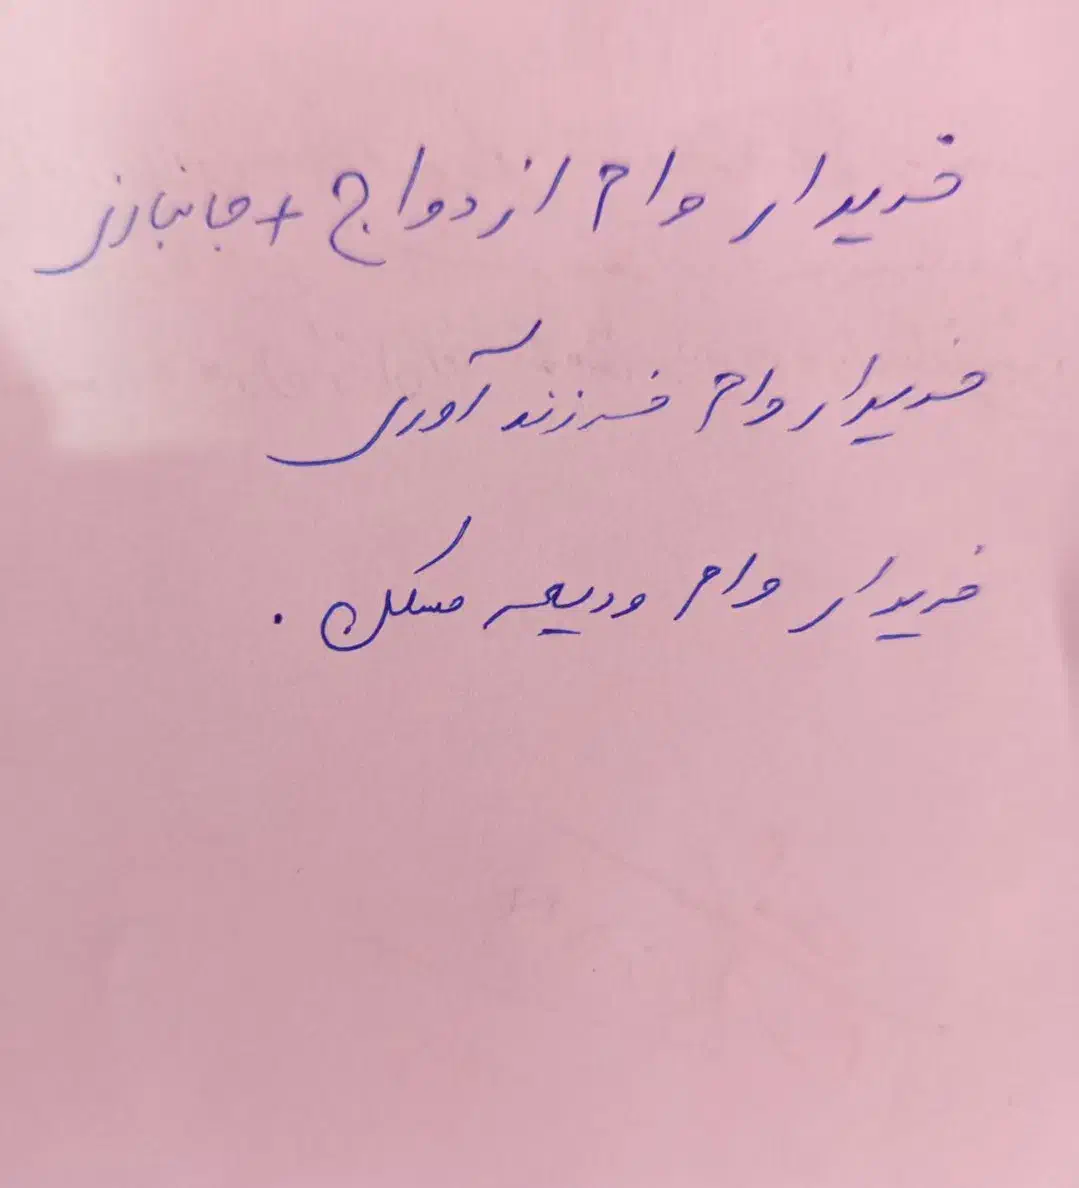 خریدار وام ازدواج + جانبازی
خریدار وام فرزند آوری
خریدار وام ودیعه مسکن .